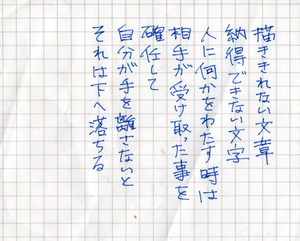 描ききれない文章
納得できない文字
人に何かをわたす時は
相手が受け取った事を
確任して
自分が手を離さないと
それは下へ落ちる